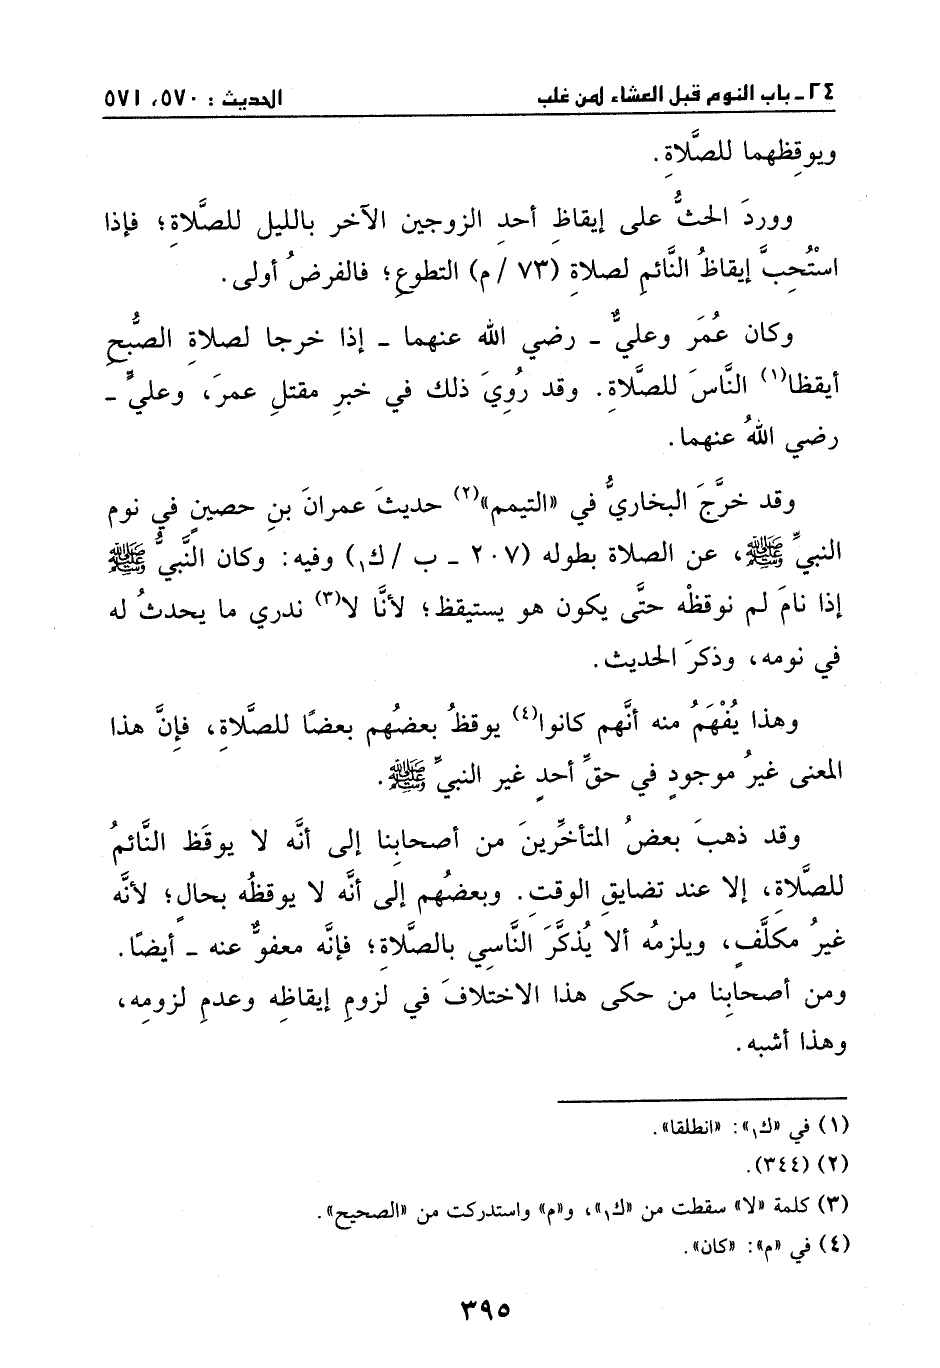 ٢٤ـ باب النوم قبل العشاء لمن غلب الحديث : ٥٧٠، ٥٧١
ويوقِظهما للصَّلاةِ.
ووردَ الحثُّ على إيقاظِ أحدِ الزوجين الآخر بالليل للصَّلاةِ؛ فإذا
اسْتُحِبَّ إيقاظُ النَّائمِ لصلاةِ (٧٣ / م) التطوعِ؛ فالفرضُ أولى.
وكان عُمَر وعليٌّ ـ رضي الله عنهما ـ إذا خرجا لصلاةِ الصُّبحِ
أيقظا(١) النَّاسَ للصَّلاةِ. وقد رُوِيَ ذلك في خبرِ مقتلِ عمرَ، وعليٍّ ـ
رضي اللهُ عنهما.
وقد خرَّجَ البخاريُّ في «التيمم»(٢) حديثَ عمرانَ بنِ حصينٍ في نوم
النبيِّ ﷺ، عن الصلاة بطوله (٢٠٧ ـ ب / ك١) وفيه: وكان النَّبيُّ ﷺ
إذا نامَ لم نوقظْه حتَّى يكون هو يستيقظ؛ لأنَّا لا(٣) ندري ما يحدثُ له
في نومه، وذكرَ الحديث.
وهذا يُفْهَمُ منه أنَّهم كانوا(٤) يوقظُ بعضُهم بعضًا للصَّلاةِ، فإِنَّ هذا
المعنى غيرُ موجودٍ في حقِّ أحدٍ غير النبيِّ ﷺ.
وقد ذهبَ بعضُ المتأخِّرينَ من أصحابِنا إلى أنَّه لا يوقَظ النَّائمُ
للصَّلاةِ، إلا عند تضايقِ الوقتِ. وبعضُهم إلى أنَّه لا يوقظُه بحالٍ؛ لأنَّه
غيرُ مكلَّفٍ، ويلزمُه ألا يُذكَّرَ النَّاسي بالصَّلاةِ؛ فإنَّه معفوٌّ عنه ـ أيضًا.
ومن أصحابِنا من حكى هذا الاختلافَ في لزومِ إيقاظِه وعدمِ لزومِه،
وهذا أشبه.
(١) في «ك١»: «انطلقا».
(٢) (٣٤٤).
(٣) كلمة «لا» سقطت من «ك١»، و«م» واستدركت من «الصحيح».
(٤) في «م»: «كان».
٣٩٥